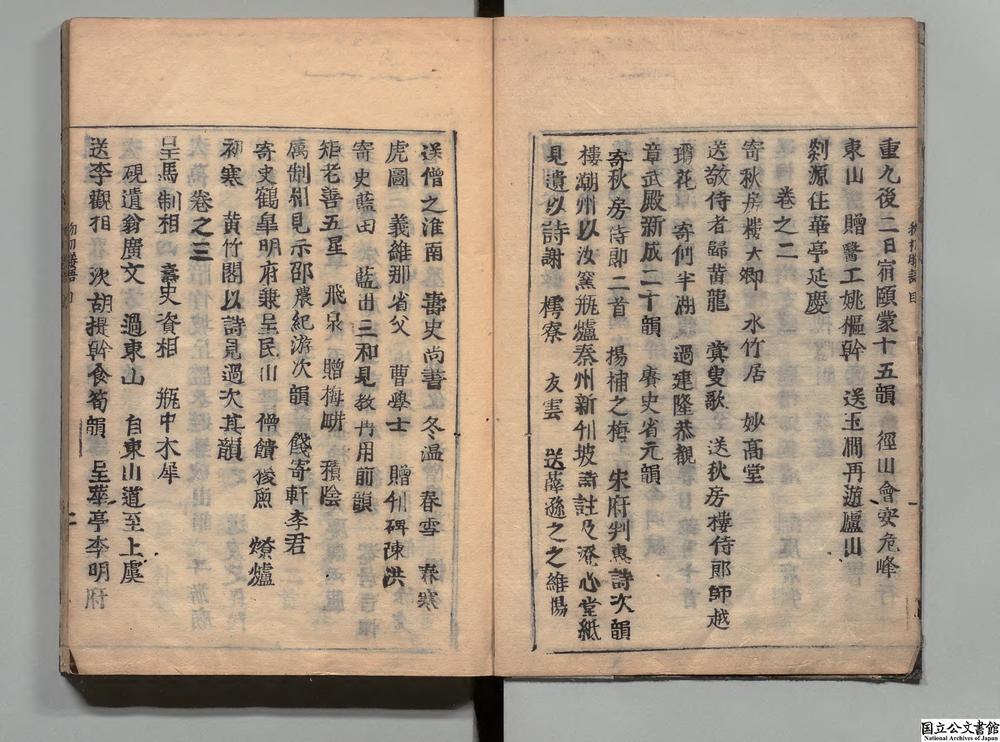 重九後二日宿頤蒙十五韻　徑山會安危峰
東山　贈醫工姚樞幹　送玉澗再遊廬山
剡源住華亭延慶
卷之二
寄秋房樓大卿　水竹居　妙高堂
送敬侍者歸黄龍　糞叟歌　送秋房樓侍郎師越
瓊花　寄何半湖　過建隆恭覩
章武殿新成二十韻　賡史省元韻
寄秋房侍郎二首　楊補之梅　朱府判惠詩次韻
樓潮州以汝窯瓶爐泰州新刊坡詩註及澄心堂紙
見遺以詩謝　樗寮　友雲　送薛遜之之維陽
一
送僧之淮南　壽史尚書　冬温　春雪　春寒
虎圖　義維那省父　曹學士　贈刊碑陳洪
寄史藍田　藍田三和見教再用前韻
矩老善五星　飛泉　贈梅畊　積陰
厲制州見示邵農紀游次韻　餞寄軒李君
寄史鶴皐明府兼呈民山　僧饋狻烝　燎爐
初寒　黄竹閣以詩見過次其韻
卷之三
呈馬制相　壽史資相　瓶中木犀
硯遺翁廣文　過東山　自東山道至上虞
送李觀相　次胡提幹食筍韻　呈華亭李明府
物初賸語　目
二
国立公文書館
National Archives of Japan